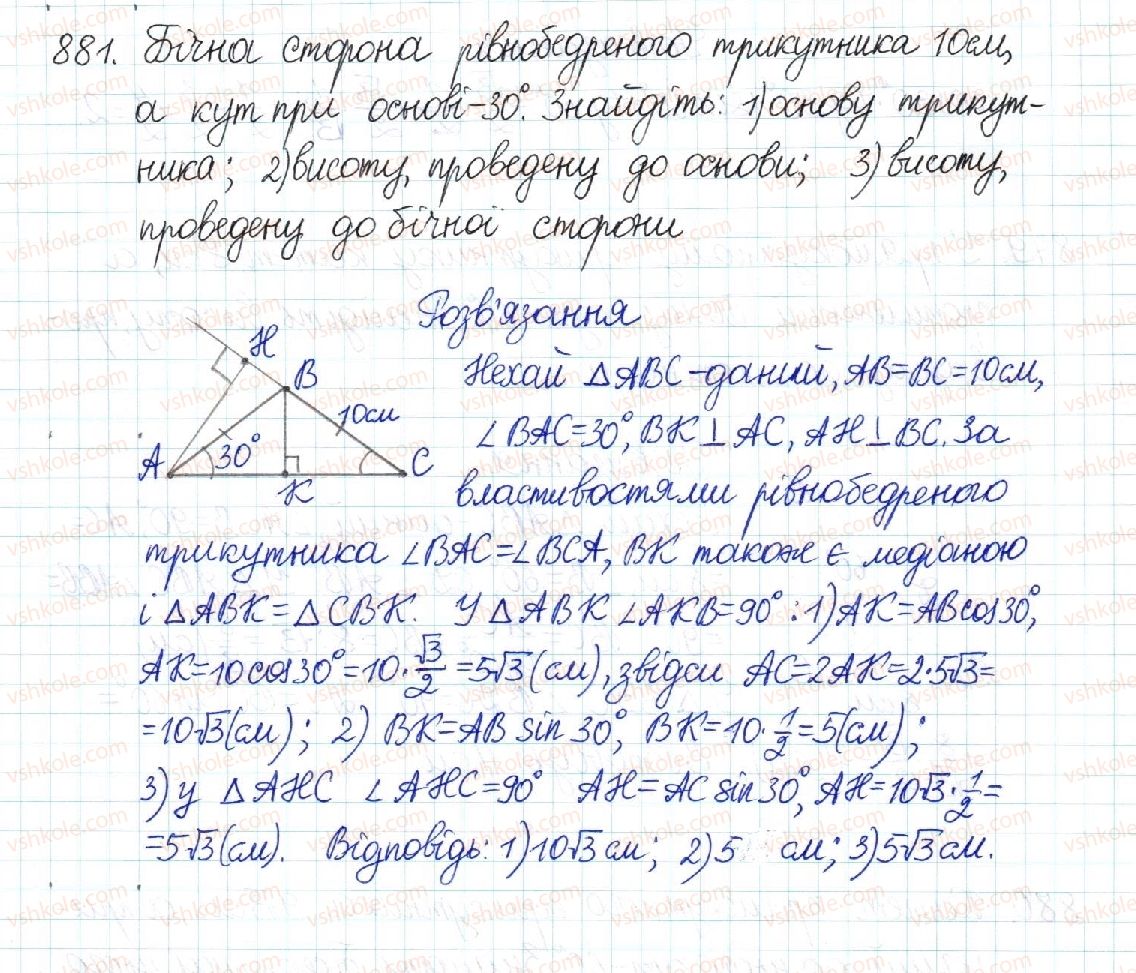 881. Бічна сторона рівнобедреного трикутника 10см,
а кут при основі-30°. Знайдіть: 1)основу трикут-
ника; 2)висоту, проведену до основи; 3)висоту,
проведену до бічної сторони
Розв'язання
H
B
10см
30°
A
K
C
Нехай △ABC-даний, AB=BC=10см,
∠BAC=30°, BK⊥AC, AH⊥BC. За
властивостями рівнобедреного
трикутника ∠BAC=∠BCA, BK також є медіаною
і △ABK=△CBK. У △ABK ∠AKB=90°: 1)AK=ABcos30°,
AK=10cos30°=10·√3/2=5√3(см), звідси AC=2AK=2·5√3=
=10√3(см); 2) BK=AB sin 30°, BK=10·1/2=5(см);
3) у △AHC ∠AHC=90° AH=AC sin30°, AH=10√3·1/2=
=5√3(см). Відповідь: 1)10√3см; 2)5 см; 3)5√3см.
vshkole.com